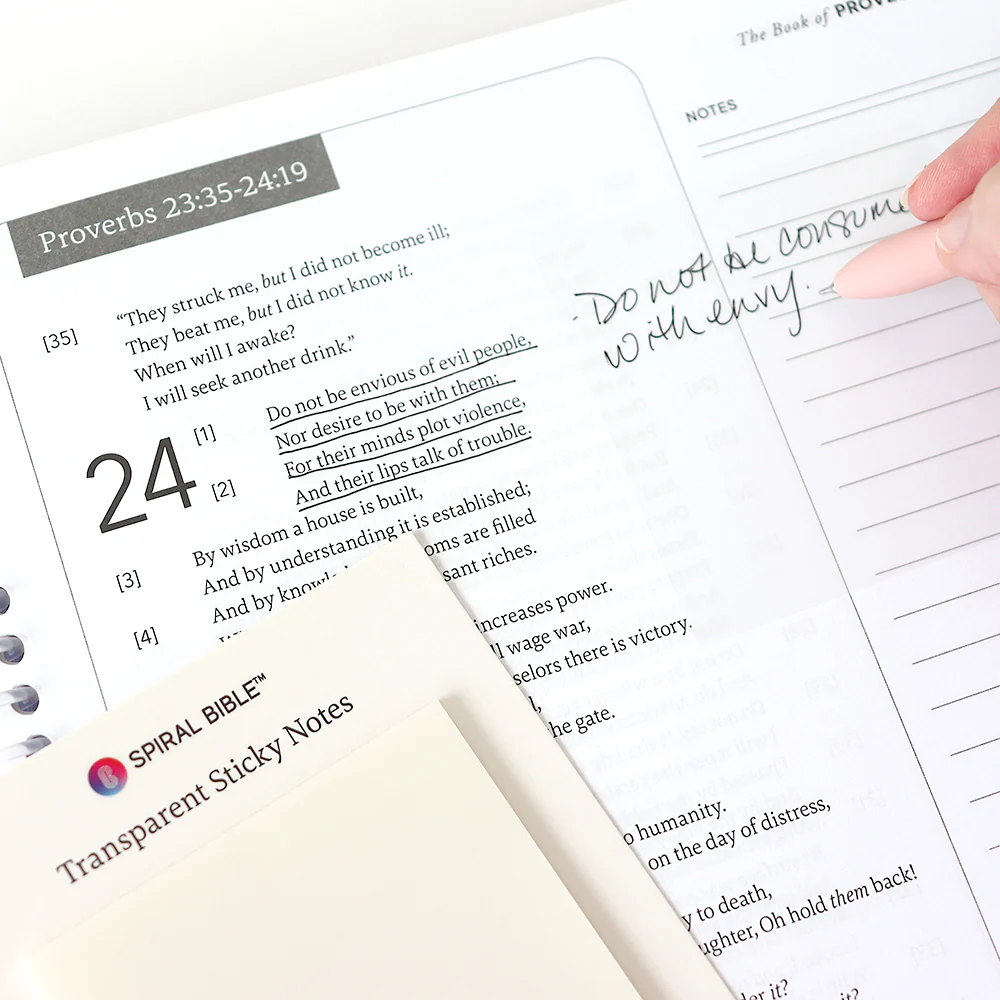 The Book of
NOTES
Proverbs 23:35-24:19
[35] “They struck me, but I did not become ill;
They beat me, but I did not know it.
When will I awake?
I will seek another drink.”
24
[1] Do not be envious of evil people,
Nor desire to be with them;
[2] For their minds plot violence,
And their lips talk of trouble.
[3] By wisdom a house is built,
And by understanding it is established;
[4] And by oms are filled
sant riches.
increases power.
wage war,
selors there is victory.
he gate.
o humanity.
on the day of distress,
y to death,
ughter, Oh hold them back!
der it?
it?
- Do not be consume
with envy.
SPIRAL BIBLE™
Transparent Sticky Notes